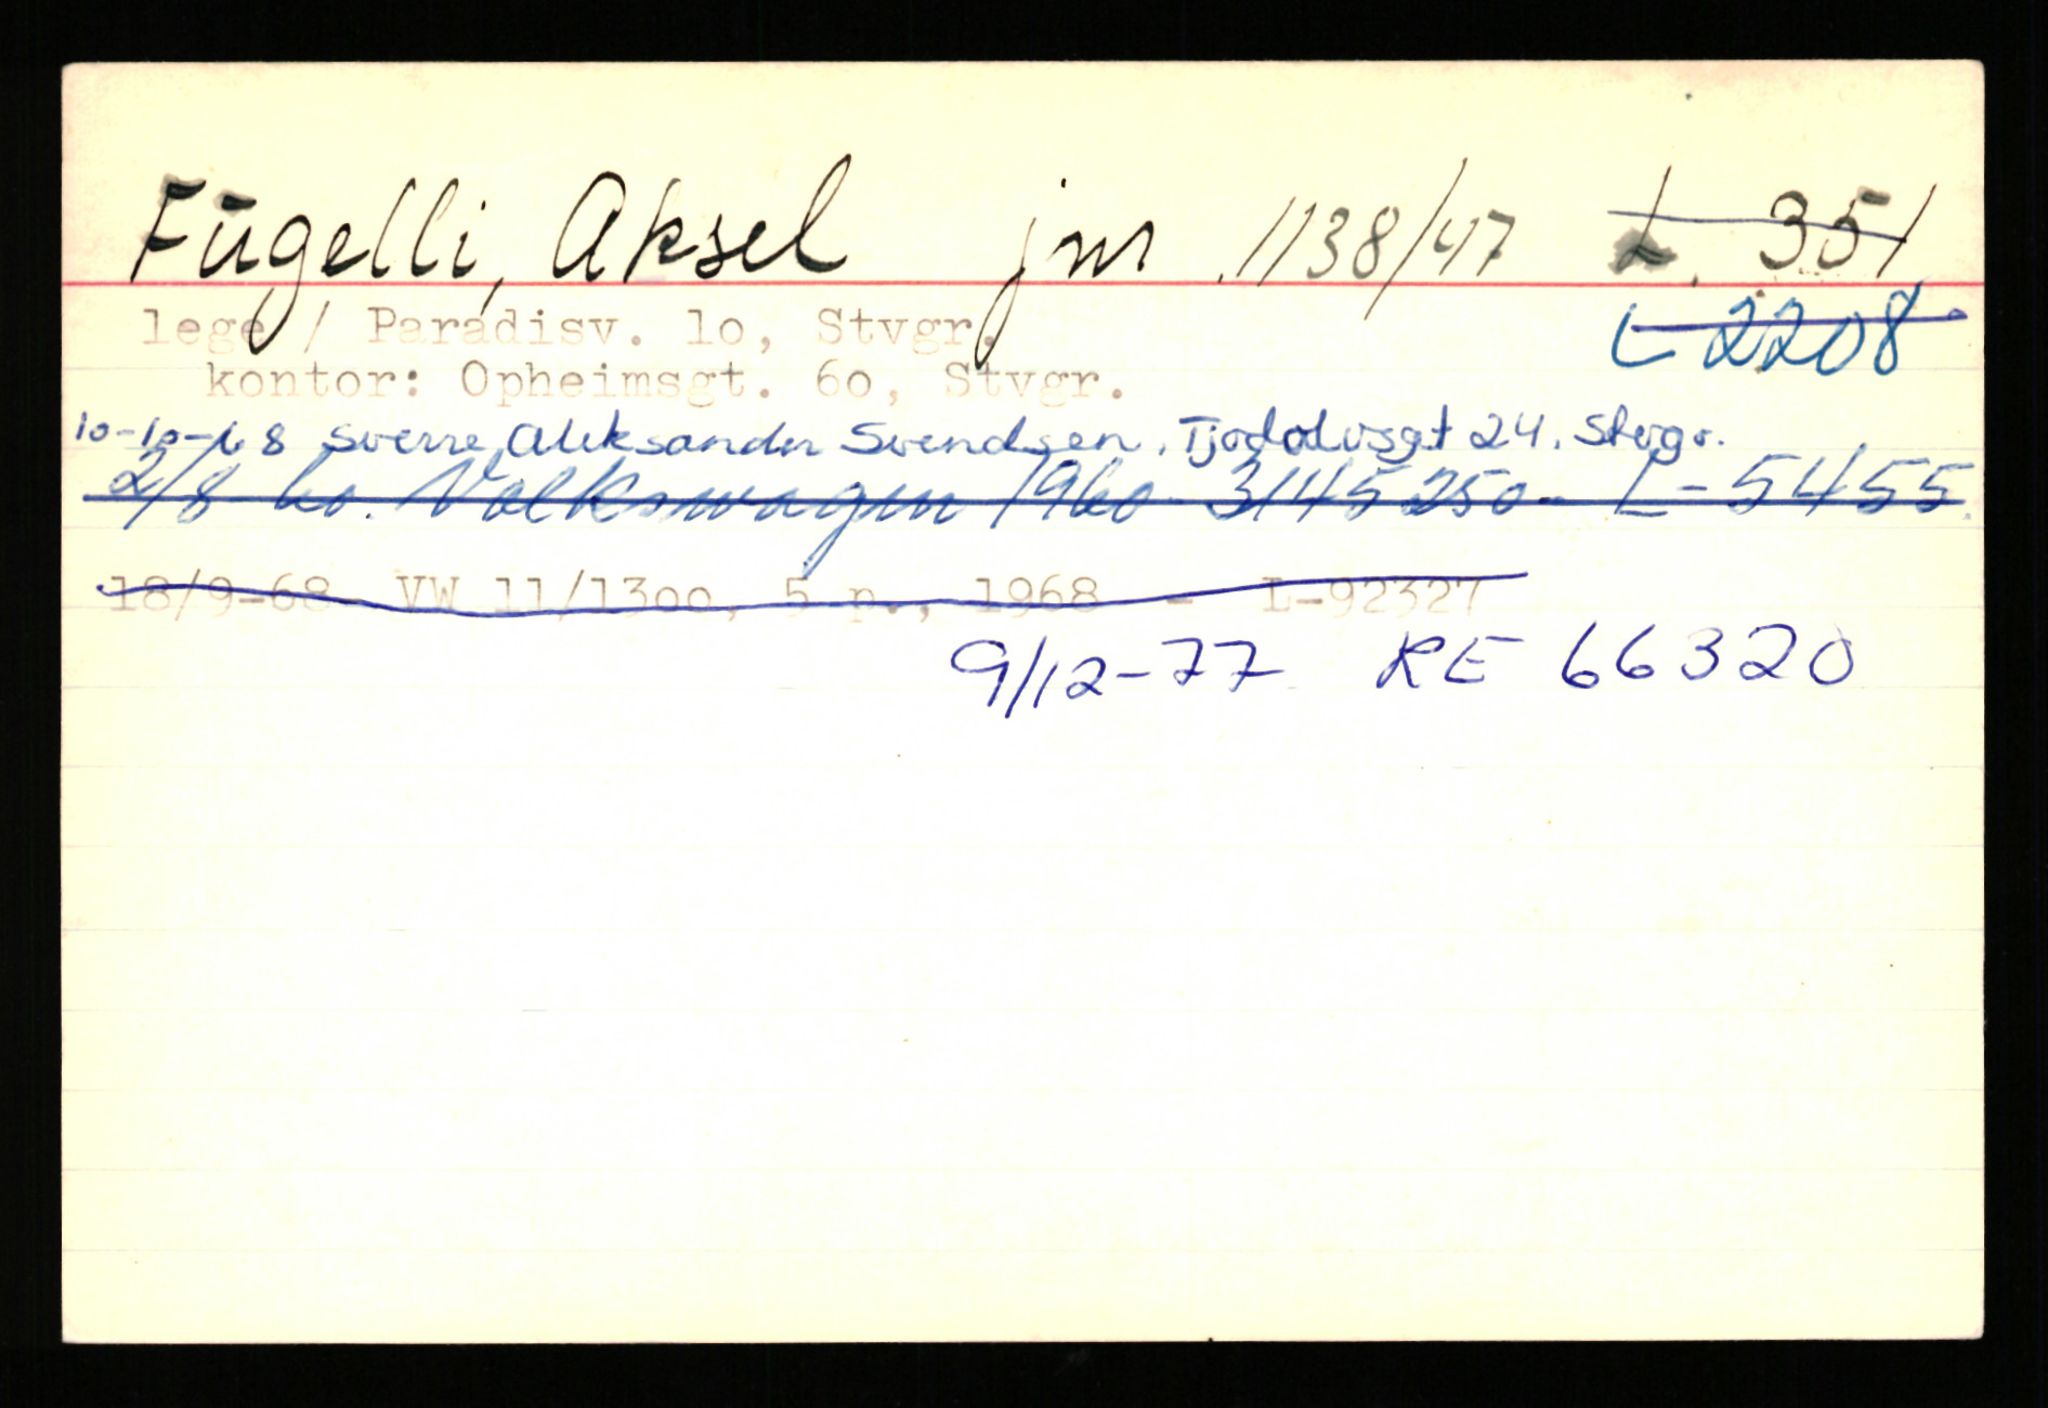 Fūgelli, Aksel jnr 1138/47 L. 351
lege / Paradisv. 1o, Stvgr.
L-2208
kontor: Opheimsgt. 6o, Stvgr.
10-10-68 Sverre Aleksander Svendsen. Tjodolvsgt 24. Stvgr.
2/8 60. Volkswagen 1960 3145250 - L-5455
18/9-68- VW 11/13oo, 5 p., 1968 - L-92327
9/12-77 RE 66320